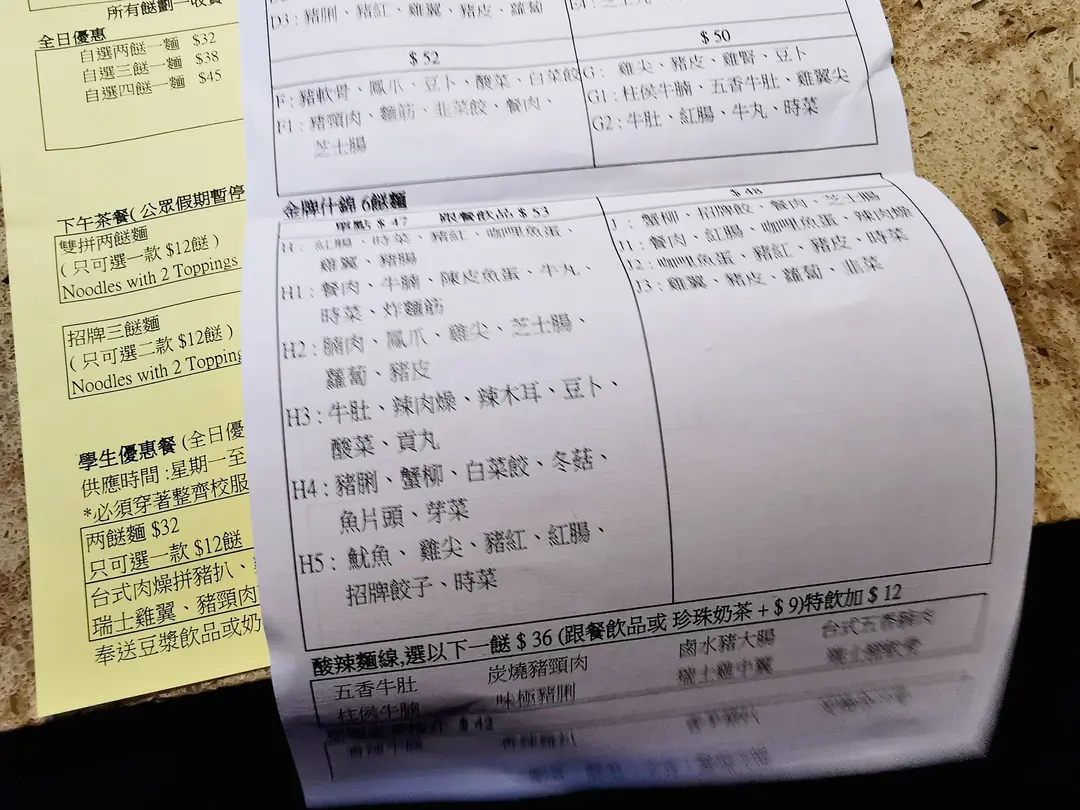 所有餸劃一收費
全日優惠
自選两餸一麵 $32
自選三餸一麵 $38
自選四餸一麵 $45
下午茶餐(公眾假期暫停
雙拼两餸麵
(只可選一款 $12餸)
Noodles with 2 Toppings
招牌三餸麵
(只可選二款 $12餸)
Noodles with 2 Topping
學生優惠餐 (全日優
供應時間 :星期一至
*必須穿著整齊校服
两餸麵 $32
只可選一款 $12餸
台式肉燥拼豬扒、
瑞士雞翼、豬頸肉
奉送豆漿飲品或奶
D3 : 豬脷、豬紅、雞翼、豬皮、蘿蔔
$ 52
F : 豬軟骨、鳳爪、豆卜、酸菜、白菜餃
F1 : 豬頸肉、麵筋、韭菜餃、餐肉、
芝士腸
$ 50
G : 雞尖、豬皮、雞腎、豆卜
G1 : 柱侯牛腩、五香牛肚、雞翼尖
G2 : 牛肚、紅腸、牛丸、時菜
金牌什錦 6餸麵
單點 $ 47 跟餐飲品 $ 53
H : 紅腸、時菜、豬紅、咖哩魚蛋、
雞翼、豬腸
H1 : 餐肉、牛腩、陳皮魚蛋、牛丸、
時菜、炸麵筋
H2 : 腩肉、鳳爪、雞尖、芝士腸、
蘿蔔、豬皮
H3 : 牛肚、辣肉燥、辣木耳、豆卜、
酸菜、貢丸
H4 : 豬脷、蟹柳、白菜餃、冬菇、
魚片頭、芽菜
H5 : 魷魚、雞尖、豬紅、紅腸、
招牌餃子、時菜
$ 48
J : 蟹柳、招牌餃、餐肉、芝士腸
J1 : 餐肉、紅腸、咖哩魚蛋、辣肉燥
J2 : 咖哩魚蛋、豬紅、豬皮、時菜
J3 : 雞翼、豬皮、蘿蔔、韭菜
酸辣麵線,選以下一餸 $ 36 (跟餐飲品或 珍珠奶茶 + $ 9)特飲加 $ 12
五香牛肚 炭燒豬頸肉 鹵水豬大腸
柱侯牛腩 味極豬脷 瑞士雞中翼
$ 42